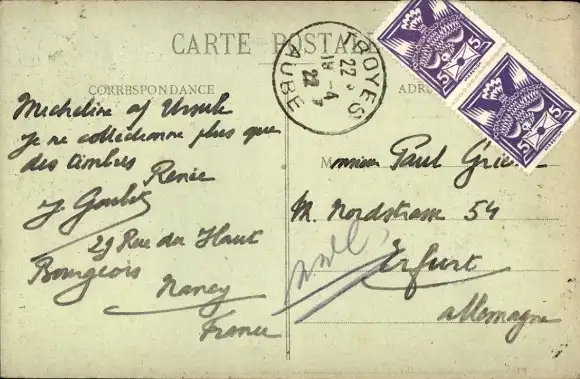 CARTE POSTALE
CORRESPONDANCE
Micheline of Ursule
je ne collectionne plus que
des timbres
Renée
J. Goubet
29 Rue du Haut
Bourgeois
Nancy
France
TROYES
22
18 - 4
22
AUBE
5
5
5
5
ADR
M
monsieur Paul
M. Nordstrasse 54
Erfurt
Allemagne